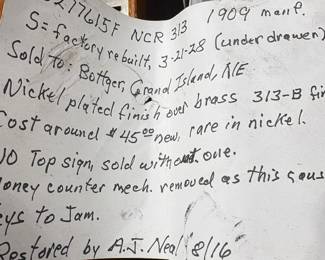 277615F NCR 313 1909 manf.
S= factory rebuilt, 3-21-28 (under drawer)
Sold to: Bottger, Grand Island, NE
Nickel plated finish over brass 313-B fin
Cost around $45.00 new, rare in nickel.
NO Top sign, sold without one.
oney counter mech. removed as this caus
eys to Jam.
Restored by A.J. Neal 8/16